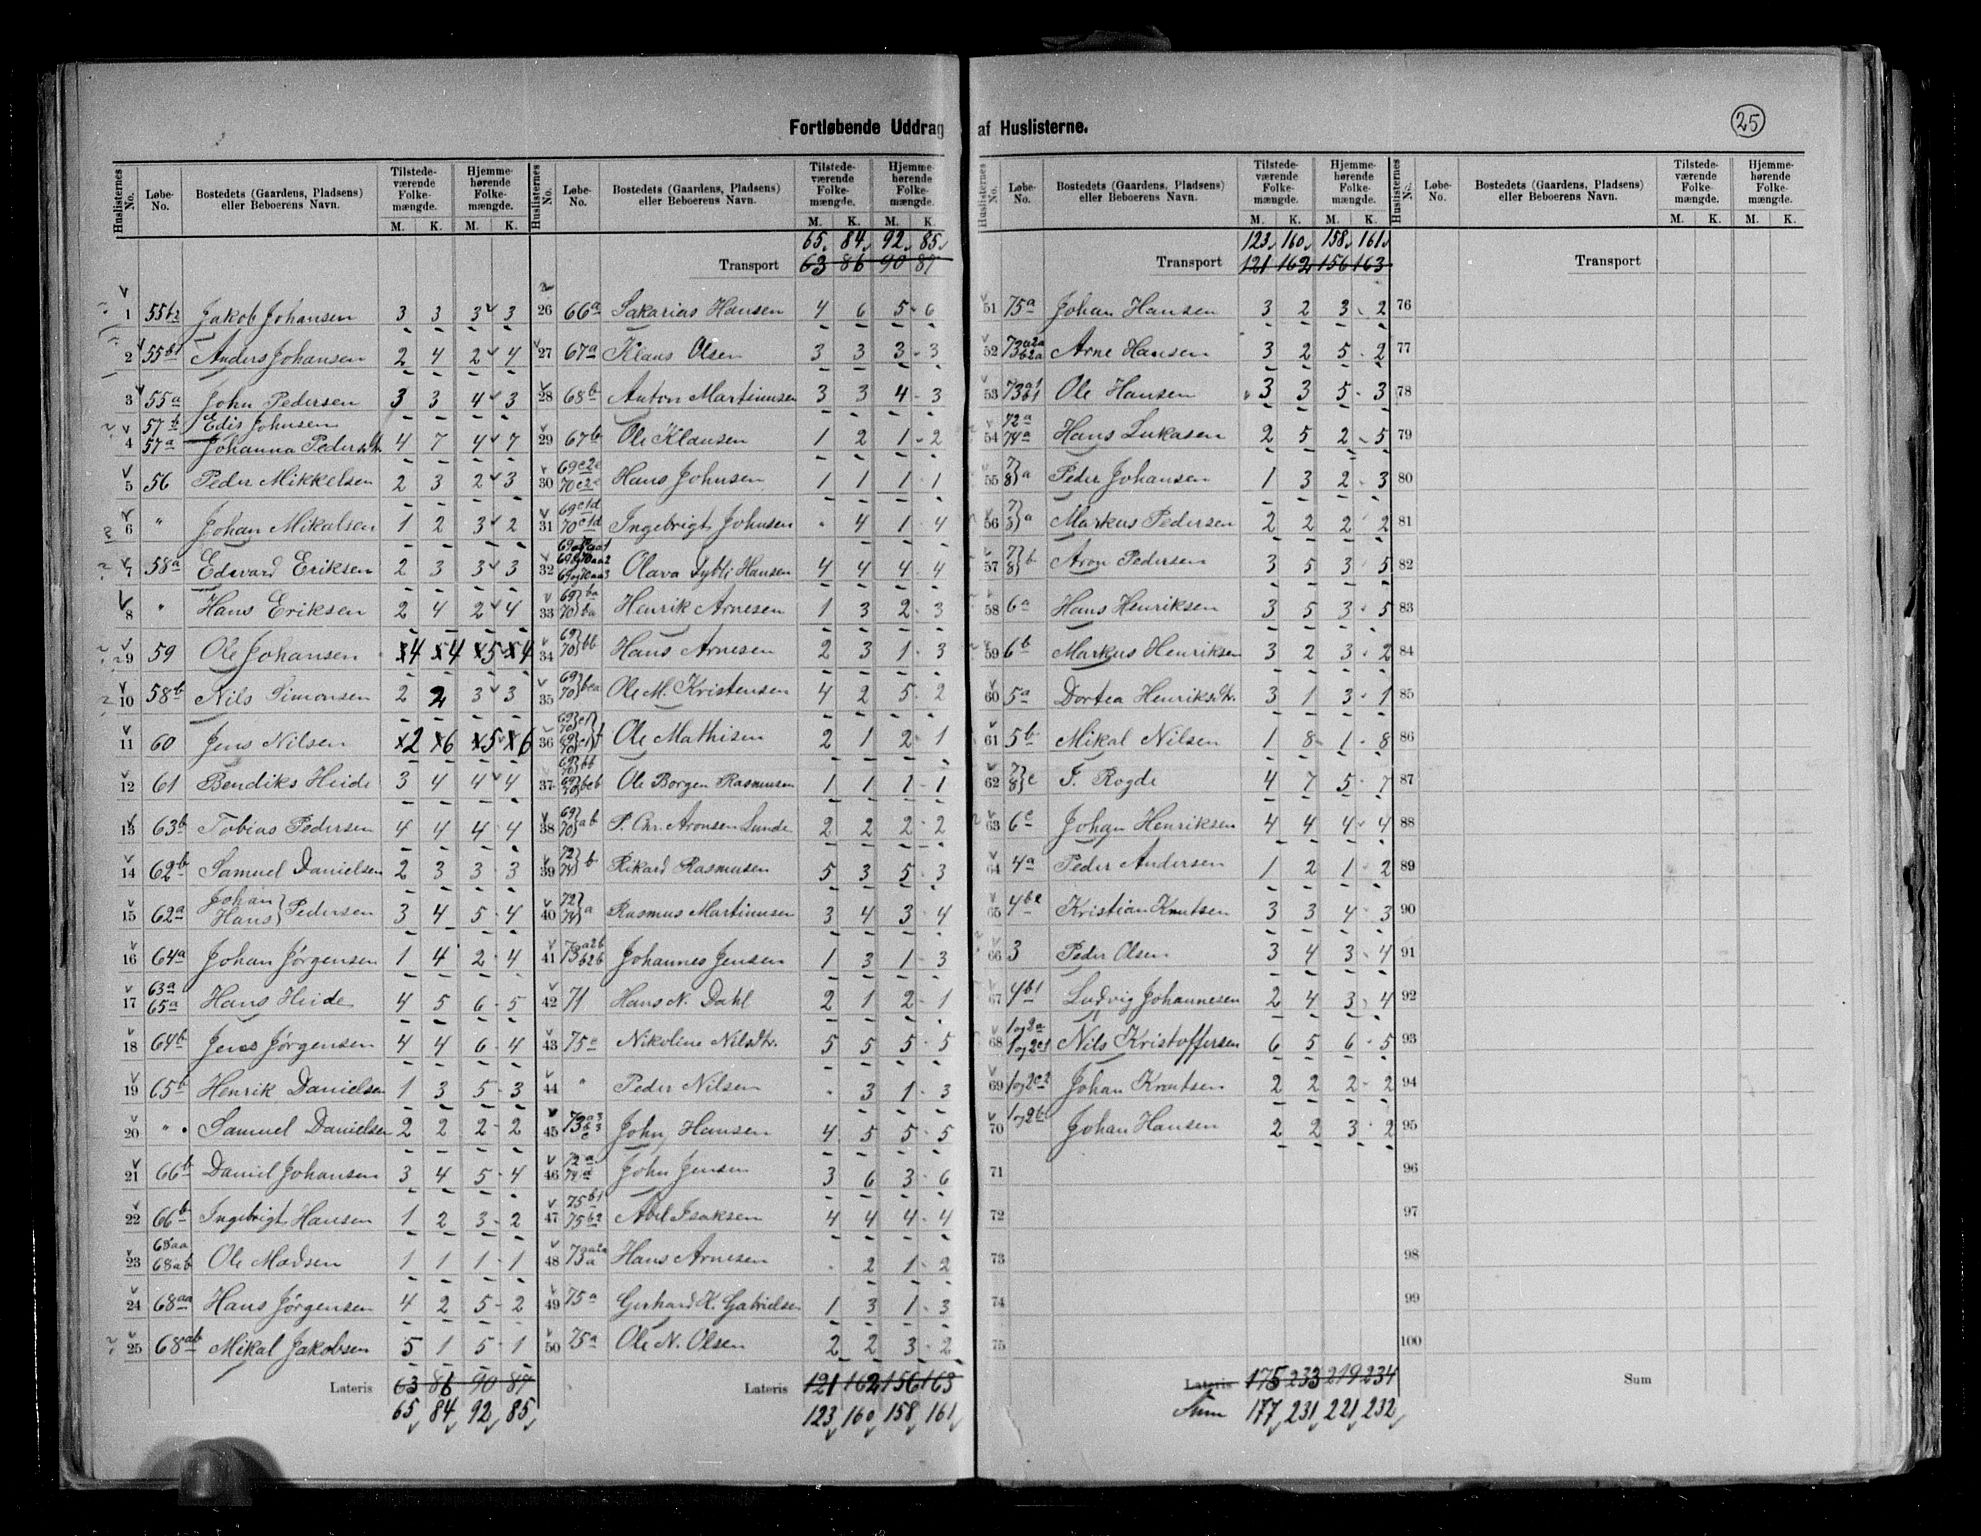 Fortløbende Uddrag af Huslisterne.
25
Huslisternes No. Løbe-No. Bostedets (Gaardens, Pladsens) eller Beboerens Navn. Tilstedeværende Folkemængde. M. K. Hjemmehørende Folkemængde. M. K.
1 55b2 Jakob Johansen 3 3 3 3
2 55b1 Anders Johansen 2 4 2 4
3 55a John Pedersen 3 3 4 3
57b Edis Johnsen
4 57a Johanna Pedersdtr. 4 7 4 7
5 56 Peder Mikkelsen 2 3 2 3
6 " Johan Mikalsen 1 2 3 2
7 58a Edvard Eriksen 2 3 3 3
8 " Hans Eriksen 2 4 2 4
9 59 Ole Johansen 4 4 5 4
10 58b Nils Simonsen 2 2 3 3
11 60 Jens Nilsen 2 6 5 6
12 61 Bendiks Heide 3 4 4 4
13 63b Tobias Pedersen 4 4 4 4
14 62b Samuel Danielsen 2 3 3 3
15 62a Johan Hans } Pedersen 3 4 5 4
16 64a Johan Jørgensen 1 4 2 4
17 63a 65a Hans Heide 4 5 6 5
18 64b Jens Jørgensen 4 4 6 4
19 65b Henrik Danielsen 1 3 5 3
20 " Samuel Danielsen 2 2 2 2
21 66b Daniel Johansen 3 4 5 4
22 66b Ingebrigt Hansen 1 2 3 2
23 68aa 68ab Ole Madsen 1 1 1 1
24 68aa Hans Jørgensen 4 2 5 2
25 68ab Mikal Jakobsen 5 1 5 1
Lateris 63 86 90 87
65 84 92 85
Huslisternes No. Løbe-No. Bostedets (Gaardens, Pladsens) eller Beboerens Navn. Tilstedeværende Folkemængde. M. K. Hjemmehørende Folkemængde. M. K.
65 84 92 85
Transport 63 86 90 87
26 66a Sakarias Hansen 4 6 5 6
27 67a Klaus Olsen 3 3 3 3
28 68b Anton Martinusen 3 3 4 3
29 67b Ole Klausen 1 2 1 2
30 69c2e 70c2e Hans Johnsen 1 1 1 1
31 69c1d 70c1d Ingebrigt Johnsen - 4 1 4
32 Olava Sybli Hansen 4 4 4 4
33 69 70 } ba Henrik Arnesen 1 3 2 3
34 69 70 } bb Hans Arnesen 2 3 1 3
35 69 70 } bca Ole M. Kristensen 4 2 5 2
36 Ole Mathisen 2 1 2 1
37 Ole Borgen Rasmusen 1 1 1 1
38 69 70 } ab P. Chr. Aronsen Lunde 2 2 2 2
39 72 74 } b Rikard Rasmusen 5 3 5 3
40 72 74 } a Rasmus Martinusen 3 4 3 4
41 73 a2b b2b Johannes Jensen 1 3 1 3
42 71 Hans N. Dahl 2 1 2 1
43 75c Nikoline Nilsdtr. 5 5 5 5
44 " Peder Nilsen - 3 1 3
45 73 a3 b3 c John Hansen 4 5 5 5
46 72a 74a John Jensen 3 6 3 6
47 75b1 75b2 Abel Isaksen 4 4 4 4
48 Hans Arnesen - 2 1 2
49 75a Gerhard K. Gabrielsen 1 3 1 3
50 75a Ole N. Olsen 2 2 3 2
Lateris 121 162 156 163
123 160 158 161
Huslisternes No. Løbe-No. Bostedets (Gaardens, Pladsens) eller Beboerens Navn. Tilstedeværende Folkemængde. M. K. Hjemmehørende Folkemængde. M. K.
123 160 158 161
Transport 121 162 156 163
51 75a Johan Hansen 3 2 3 2
52 73 a2a b2a Arne Hansen 3 2 5 2
53 73 a1 b1 Ole Hansen 3 3 5 3
54 72a 74a Hans Lukasen 2 5 2 5
55 7 8 } a Peder Johansen 1 3 2 3
56 Markus Pedersen 2 2 2 2
57 7 8 } b Aron Pedersen 3 5 3 5
58 6a Hans Henriksen 3 5 3 5
59 6b Markus Henriksen 3 2 3 2
60 5a Dortea Henriksdtr. 3 1 3 1
61 5b Mikal Nilsen 1 8 1 8
62 7 8 } c F. Rogde 4 7 5 7
63 6c Johan Henriksen 4 4 4 4
64 4a Peder Andersen 1 2 1 2
65 4b2 Kristian Knutsen 3 3 4 3
66 3 Peder Olsen 3 4 3 4
67 4b1 Ludvig Johannesen 2 4 3 4
68 1og2a 1og2c1 Nils Kristoffersen 6 5 6 5
69 1og2c2 Johan Knutsen 2 2 2 2
70 1og2b Johan Hansen 2 2 3 2
71
72
73
74
75
Lateris 175 233 219 234
Sum 177 231 221 232
Huslisternes No. Løbe-No. Bostedets (Gaardens, Pladsens) eller Beboerens Navn. Tilstedeværende Folkemængde. M. K. Hjemmehørende Folkemængde. M. K.
Transport
76
77
78
79
80
81
82
83
84
85
86
87
88
89
90
91
92
93
94
95
96
97
98
99
100
Sum